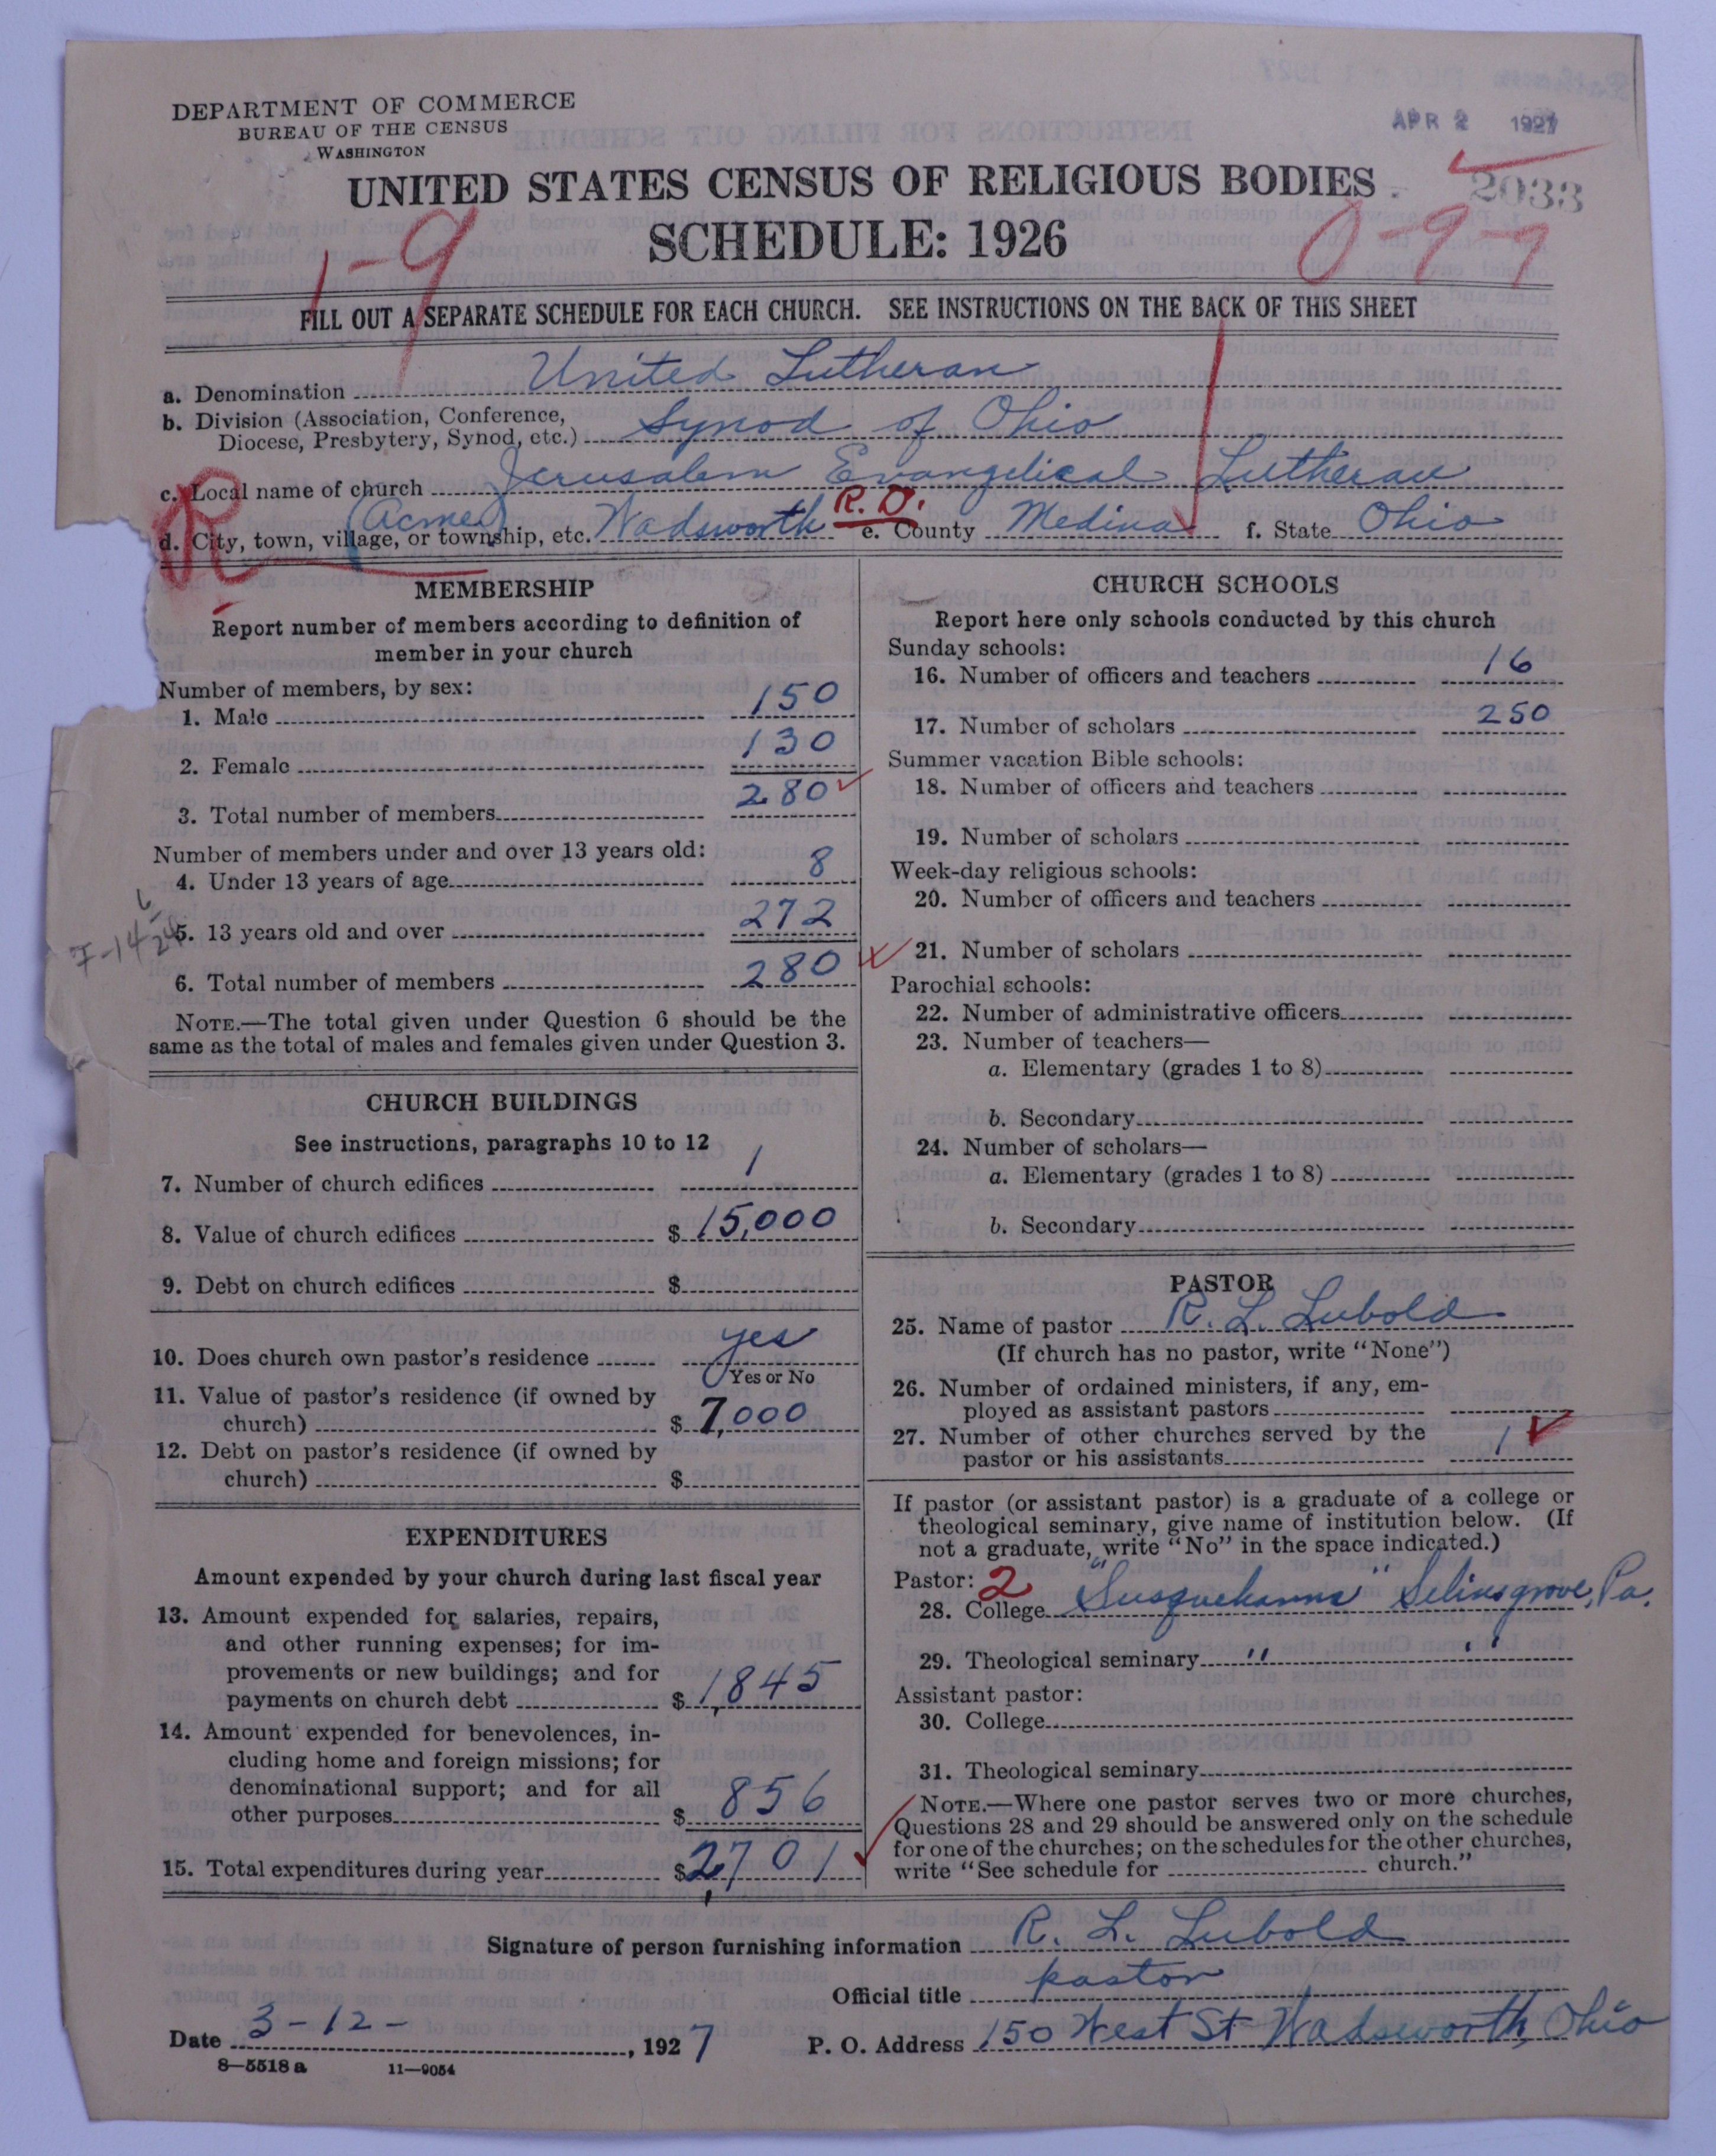 DEPARTMENT OF COMMERCE
BUREAU OF THE CENSUS
WASHINGTON
APR 2 1927
UNITED STATES CENSUS OF RELIGIOUS BODIES
2033
SCHEDULE: 1926
1-9
0-9-9
FILL OUT A SEPARATE SCHEDULE FOR EACH CHURCH. SEE INSTRUCTIONS ON THE BACK OF THIS SHEET
a. Denomination United Lutheran
b. Division (Association, Conference,
Diocese, Presbytery, Synod, etc.) Synod of Ohio
c. Local name of church Jerusalem Evangelical Lutheran
R
(Acme) R.D.
d. City, town, village, or township, etc. Wadsworth e. County Medina f. State Ohio
MEMBERSHIP
Report number of members according to definition of
member in your church
Number of members, by sex:
1. Male 150
2. Female 130
3. Total number of members 280
Number of members under and over 13 years old:
4. Under 13 years of age 8
5. 13 years old and over 272
6. Total number of members 280
NOTE.—The total given under Question 6 should be the
same as the total of males and females given under Question 3.
CHURCH BUILDINGS
See instructions, paragraphs 10 to 12
7. Number of church edifices 1
8. Value of church edifices $ 15,000
9. Debt on church edifices $
10. Does church own pastor's residence yes
Yes or No
11. Value of pastor's residence (if owned by
church) $ 7,000
12. Debt on pastor's residence (if owned by
church) $
EXPENDITURES
Amount expended by your church during last fiscal year
13. Amount expended for salaries, repairs,
and other running expenses; for im-
provements or new buildings; and for
payments on church debt $ 1,845
14. Amount expended for benevolences, in-
cluding home and foreign missions; for
denominational support; and for all
other purposes $ 856
15. Total expenditures during year $ 2,701
CHURCH SCHOOLS
Report here only schools conducted by this church
Sunday schools:
16. Number of officers and teachers 16
17. Number of scholars 250
Summer vacation Bible schools:
18. Number of officers and teachers
19. Number of scholars
Week-day religious schools:
20. Number of officers and teachers
21. Number of scholars
Parochial schools:
22. Number of administrative officers
23. Number of teachers—
a. Elementary (grades 1 to 8)
b. Secondary
24. Number of scholars—
a. Elementary (grades 1 to 8)
b. Secondary
PASTOR
25. Name of pastor R. L. Lubold
(If church has no pastor, write "None")
26. Number of ordained ministers, if any, em-
ployed as assistant pastors
27. Number of other churches served by the
pastor or his assistants 1
If pastor (or assistant pastor) is a graduate of a college or
theological seminary, give name of institution below. (If
not a graduate, write "No" in the space indicated.)
Pastor: 2
28. College "Susquehanna" Selinsgrove, Pa.
29. Theological seminary " "
Assistant pastor:
30. College
31. Theological seminary
NOTE.—Where one pastor serves two or more churches,
Questions 28 and 29 should be answered only on the schedule
for one of the churches; on the schedules for the other churches,
write "See schedule for church."
Signature of person furnishing information R. L. Lubold
Official title pastor
Date 3-12-, 1927 P. O. Address 150 West St Wadsworth, Ohio
8—5518 a 11—9054